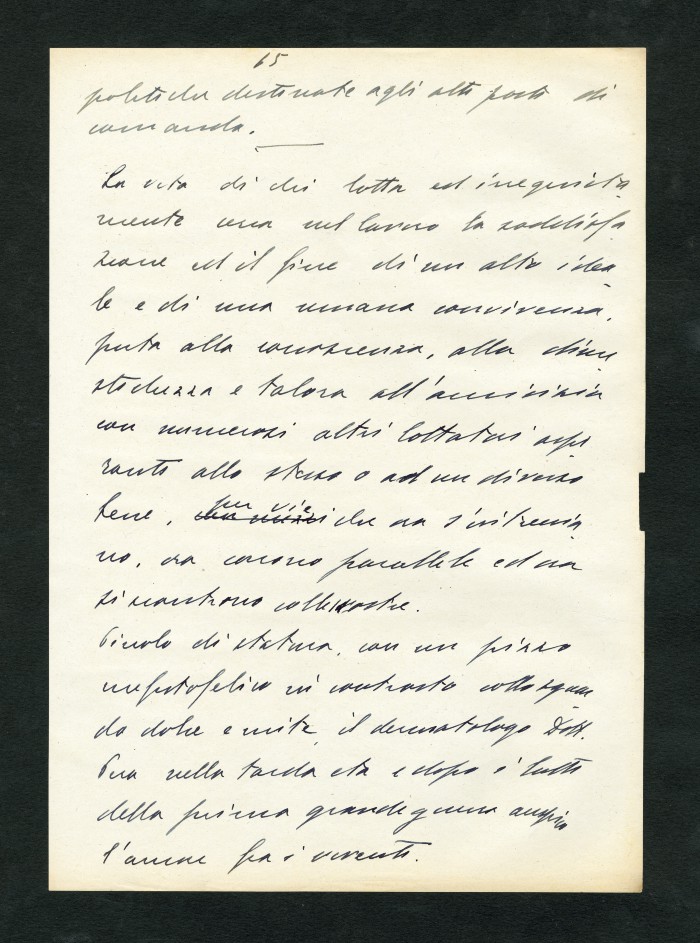 65
politiche destinate agli alti posti di
comando.
La vita di chi lotta ed inequivoca
mente cerca nel lavoro la soddisfa
zione ed il fine di un alto idea
le e di una umana convivenza,
porta alla conoscenza, alla dime
stichezza e talora all'amicizia
con numerosi altri lottatori aspi
ranti allo stesso o ad un diverso
bene, per vie che ora s'intreccia
no, ora corrono parallele ed ora
si scontrono colle nostre.
Piccolo di statura, con un pizzo
mefistofelico in contrasto collo sguar
do dolce e mite, il dermatologo Dott.
nella tarda età e dopo i lutti
della prima grande guerra auspica
l'amore fra i viventi.